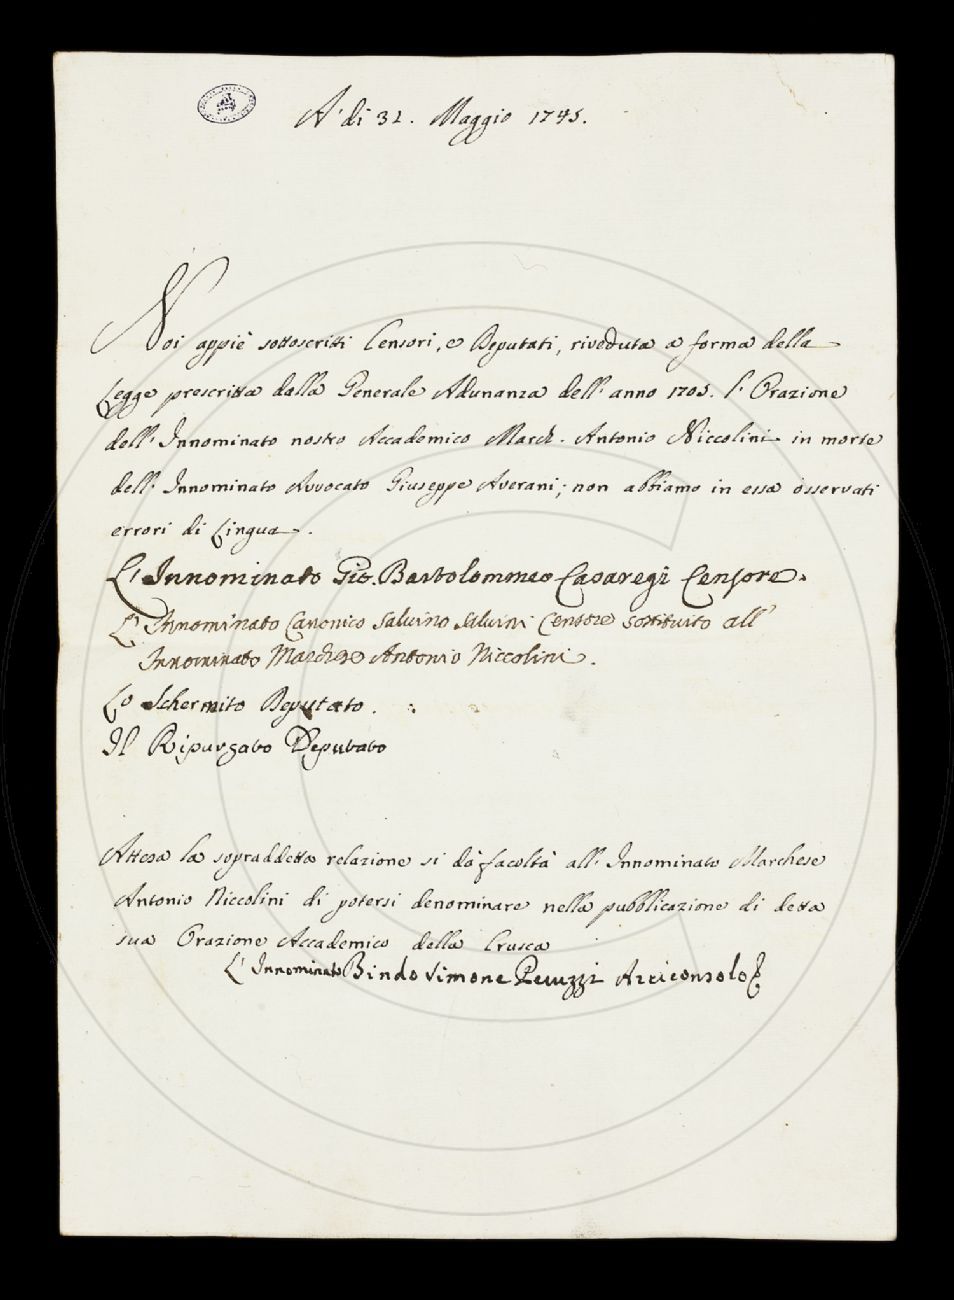 A' di 31. Maggio 1745.
Noi appiè sottoscritti Censori, e Deputati, riveduta a forma della
Legge prescritta dalla Generale Adunanza dell' anno 1705. l' Orazione
dell' Innominato nostro Accademico March. Antonio Niccolini in morte
dell' Innominato Avvocato Giuseppe Averani; non abbiamo in essa osservati
errori di Lingua.
L' Innominato Gio. Bartolommeo Casaregi Censore.
L' Innominato Canonico Salvino Salvini Censore sostituito all'
Innominato Marchese Antonio Niccolini.
Lo Schermito Deputato.
Il Ripurgato Deputato
Attesa la sopraddetta relazione si dà facoltà all' Innominato Marchese
Antonio Niccolini di potersi denominare nella pubblicazione di detta
sua Orazione Accademico della Crusca
L' Innominato Bindo Simone Peruzzi Arciconsolo